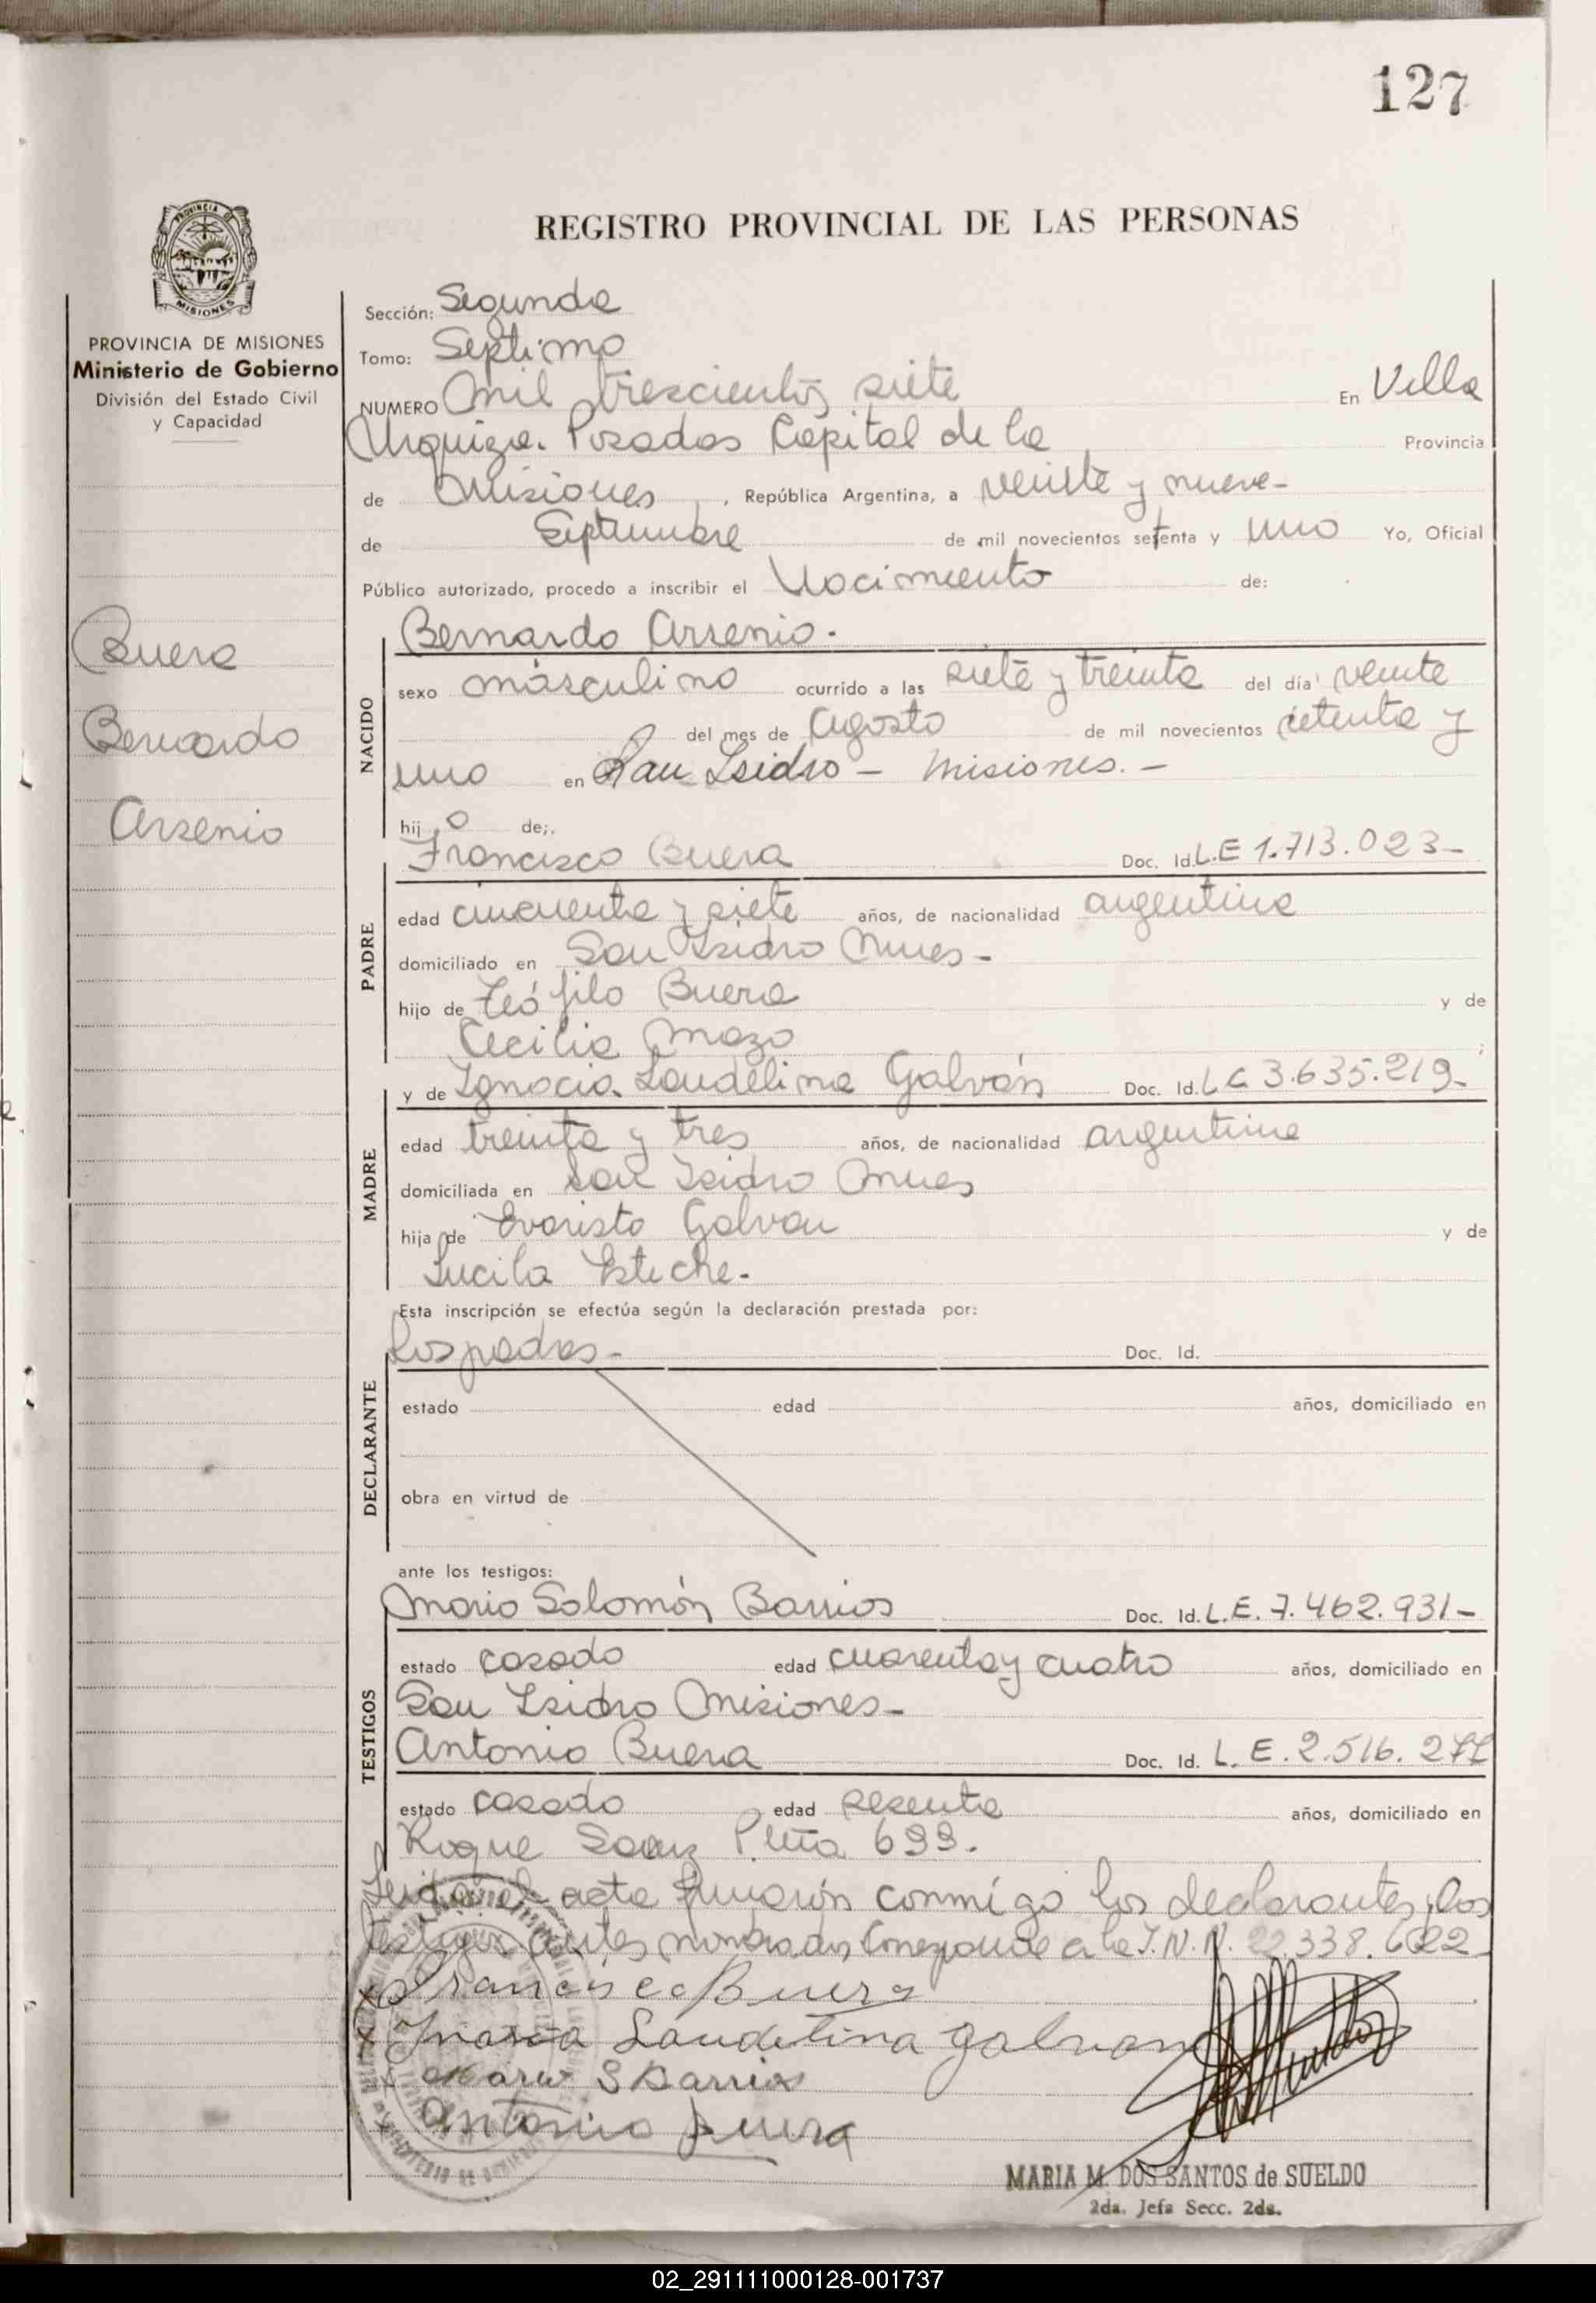 127
REGISTRO PROVINCIAL DE LAS PERSONAS
PROVINCIA DE MISIONES
Ministerio de Gobierno
División del Estado Civil
y Capacidad
Buera
Bernardo
Arsenio
Sección: Segunda
Tomo: Septimo
NUMERO Mil trescientos siete En Villa
Urquiza. Posadas Capital de la Provincia
de Misiones, República Argentina, a veinte y nueve-
de Septiembre de mil novecientos setenta y uno Yo, Oficial
Público autorizado, procedo a inscribir el Nacimiento de:
NACIDO
Bernardo Arsenio.
sexo masculino ocurrido a las siete y treinta del día veinte
del mes de Agosto de mil novecientos setenta y
uno en San Isidro - Misiones. -
hijo de;.
PADRE
Francisco Buera Doc. Id. L.E 1.713.023-
edad cincuenta y siete años, de nacionalidad argentina
domiciliado en San Isidro Mnes-
hijo de Teófilo Buera y de
Cecilia Mazo
MADRE
y de Ignacia Laudelina Galván Doc. Id. L C 3.635.219-
edad treinta y tres años, de nacionalidad argentina
domiciliada en San Isidro Mnes
hija de Evaristo Galvan y de
Lucila Esteche-
Esta inscripción se efectúa según la declaración prestada por:
DECLARANTE
Los padres- Doc. Id.
estado edad años, domiciliado en
obra en virtud de
ante los testigos:
TESTIGOS
Mario Solomón Barrios Doc. Id. L.E. 7.462.931-
estado casado edad cuarenta y cuatro años, domiciliado en
San Isidro Misiones-
Antonio Buera Doc. Id. L. E. 2.516. 277
estado casado edad sesenta años, domiciliado en
Roque Saenz Peña 699.
Leida el acta firmarón conmigo los declarantes, los
testigos antes nombrados Corresponde a la I.N.N. 22.338.622
Francisco Buera
Laudelina galvan
Mario S Barrios
Antonio Buera
MARIA M. DOS SANTOS de SUELDO
2da. Jefa Secc. 2da.
02_291111000128-001737